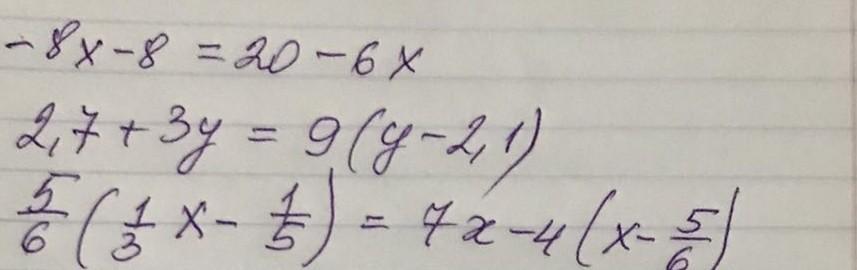 -8x-8 = 20-6x
2,7+3y = 9(y-2,1)
5/6 (1/3 x - 1/5) = 7x-4(x-5/6)